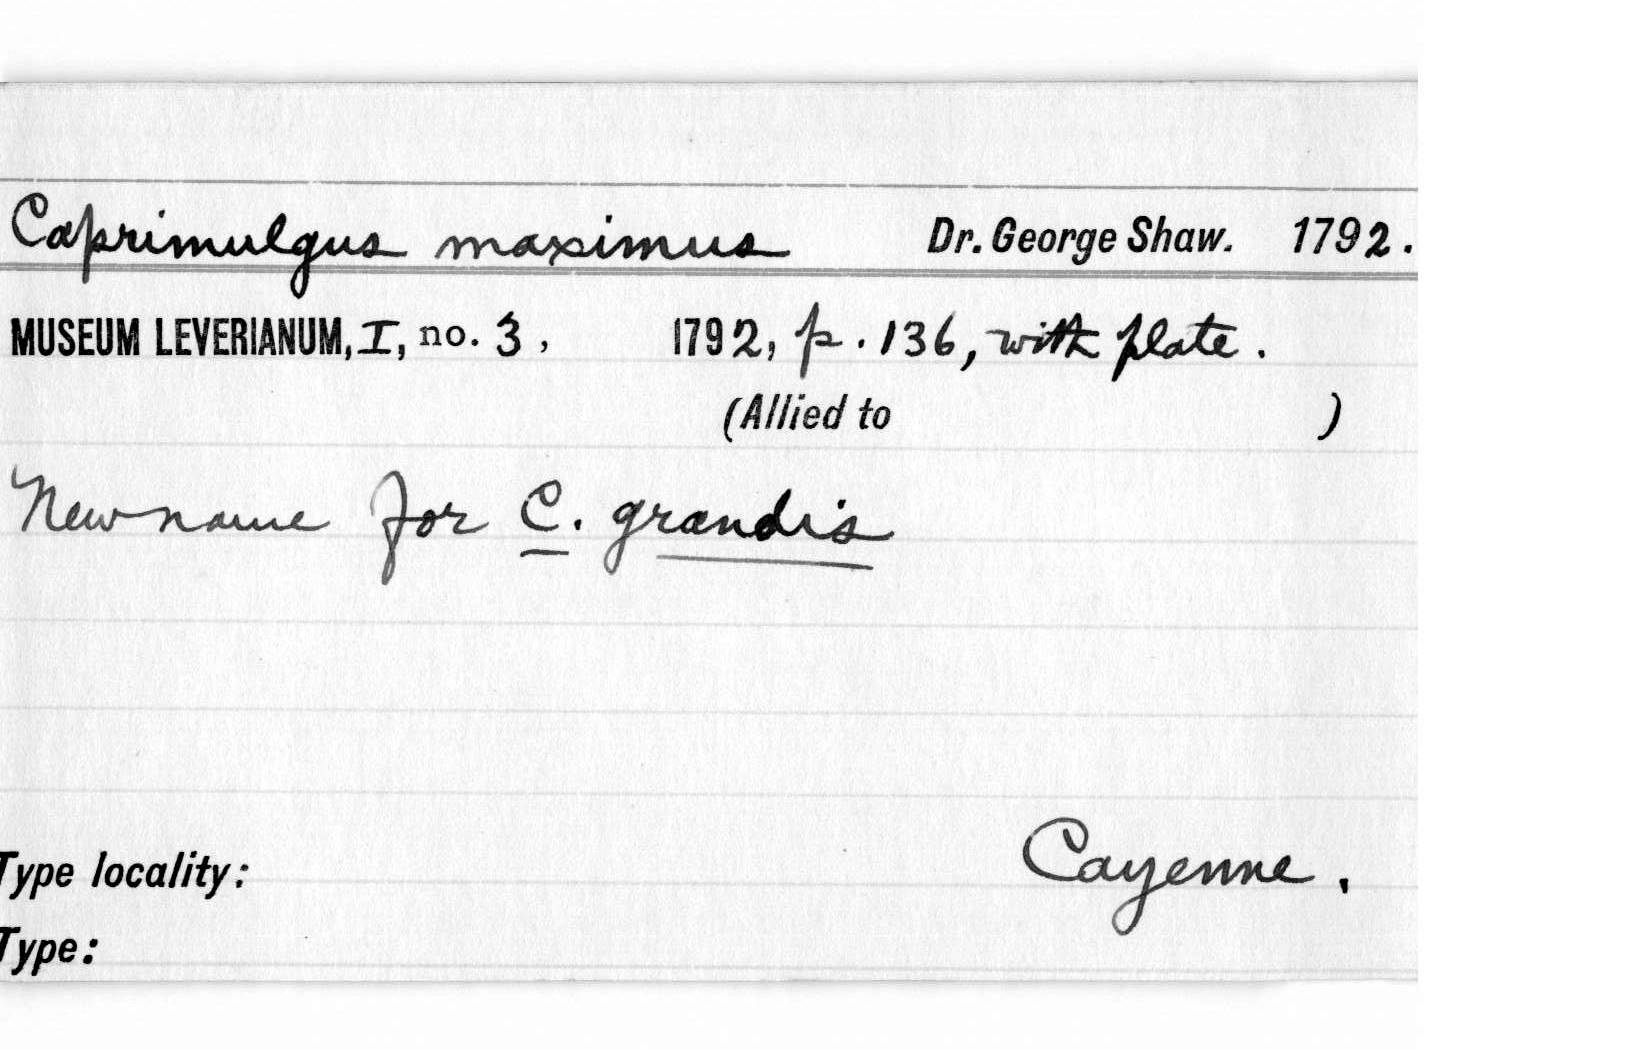 Caprimulgus maximus Dr. George Shaw. 1792.
MUSEUM LEVERIANUM, I, no. 3, 1792, p. 136, with plate.
(Allied to )
New name for C. grandis
Cayenne.
Type locality:
Type: